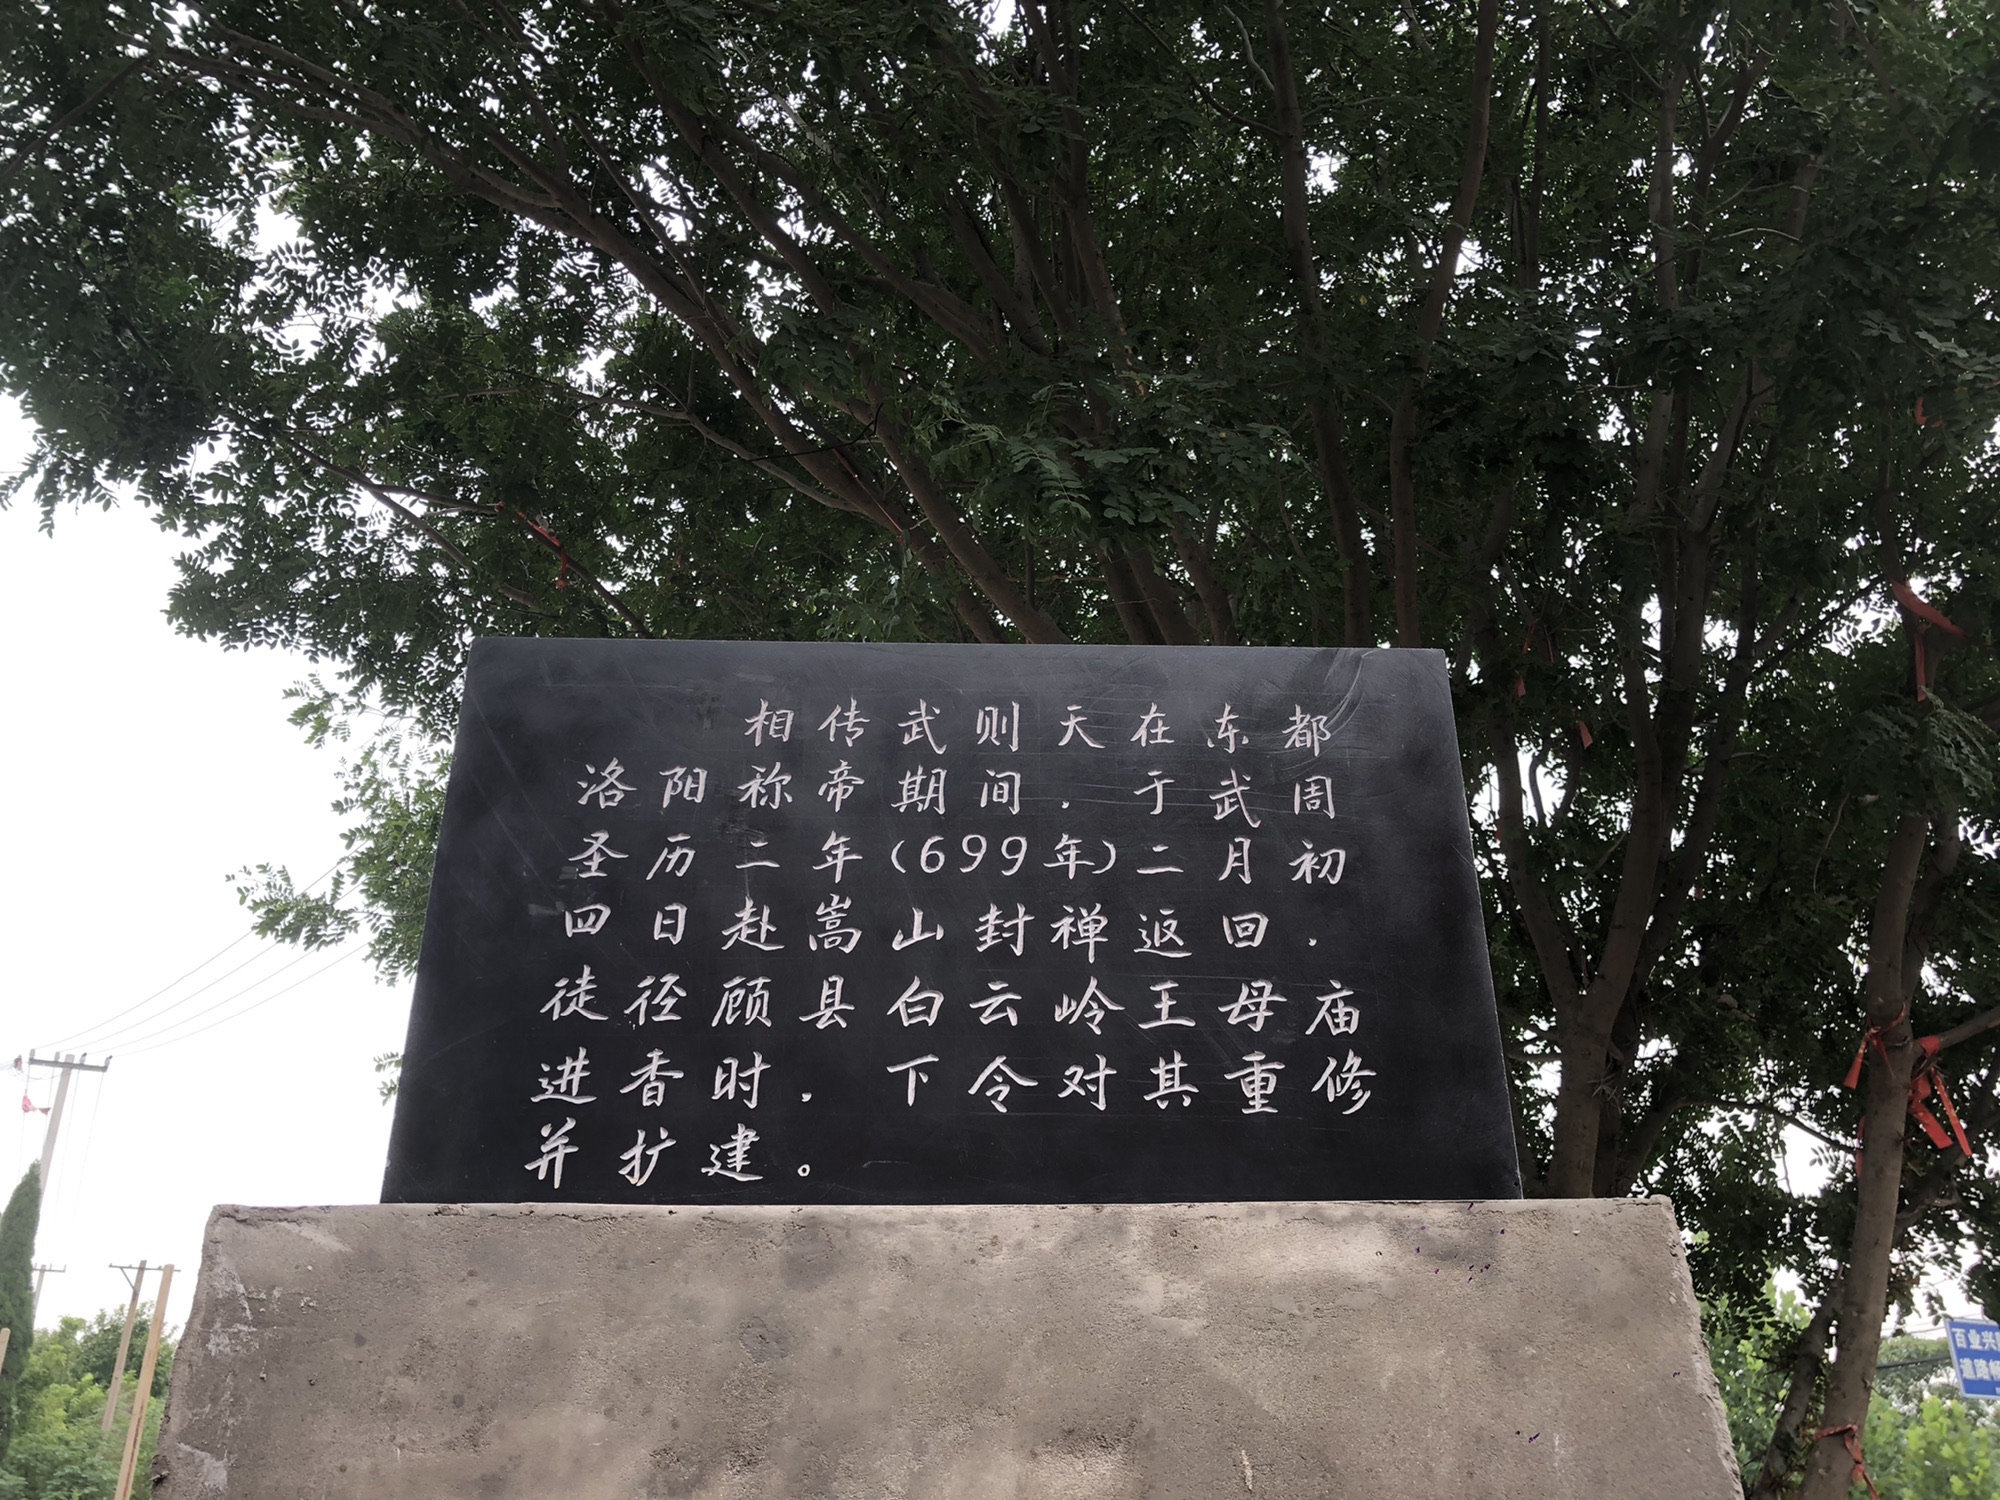 相传武则天在东都
洛阳称帝期间.于武周
圣历二年(699年)二月初
四日赴嵩山封禅返回.
徒径顾县白云岭王母庙
进香时.下令对其重修
并扩建。
百业兴
道路